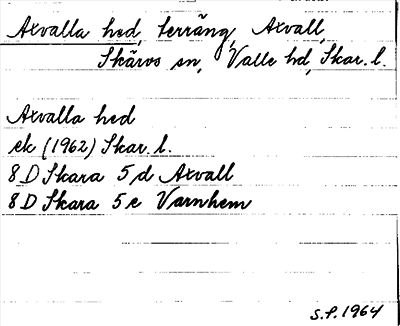 Axvalla hed, terräng, Axvall,
Skärvs sn, Valle hd, Skar. l.
Axvalla hed
ek (1962) Skar. l.
8D Skara 5d Axvall
8D Skara 5e Varnhem
S.P. 1964